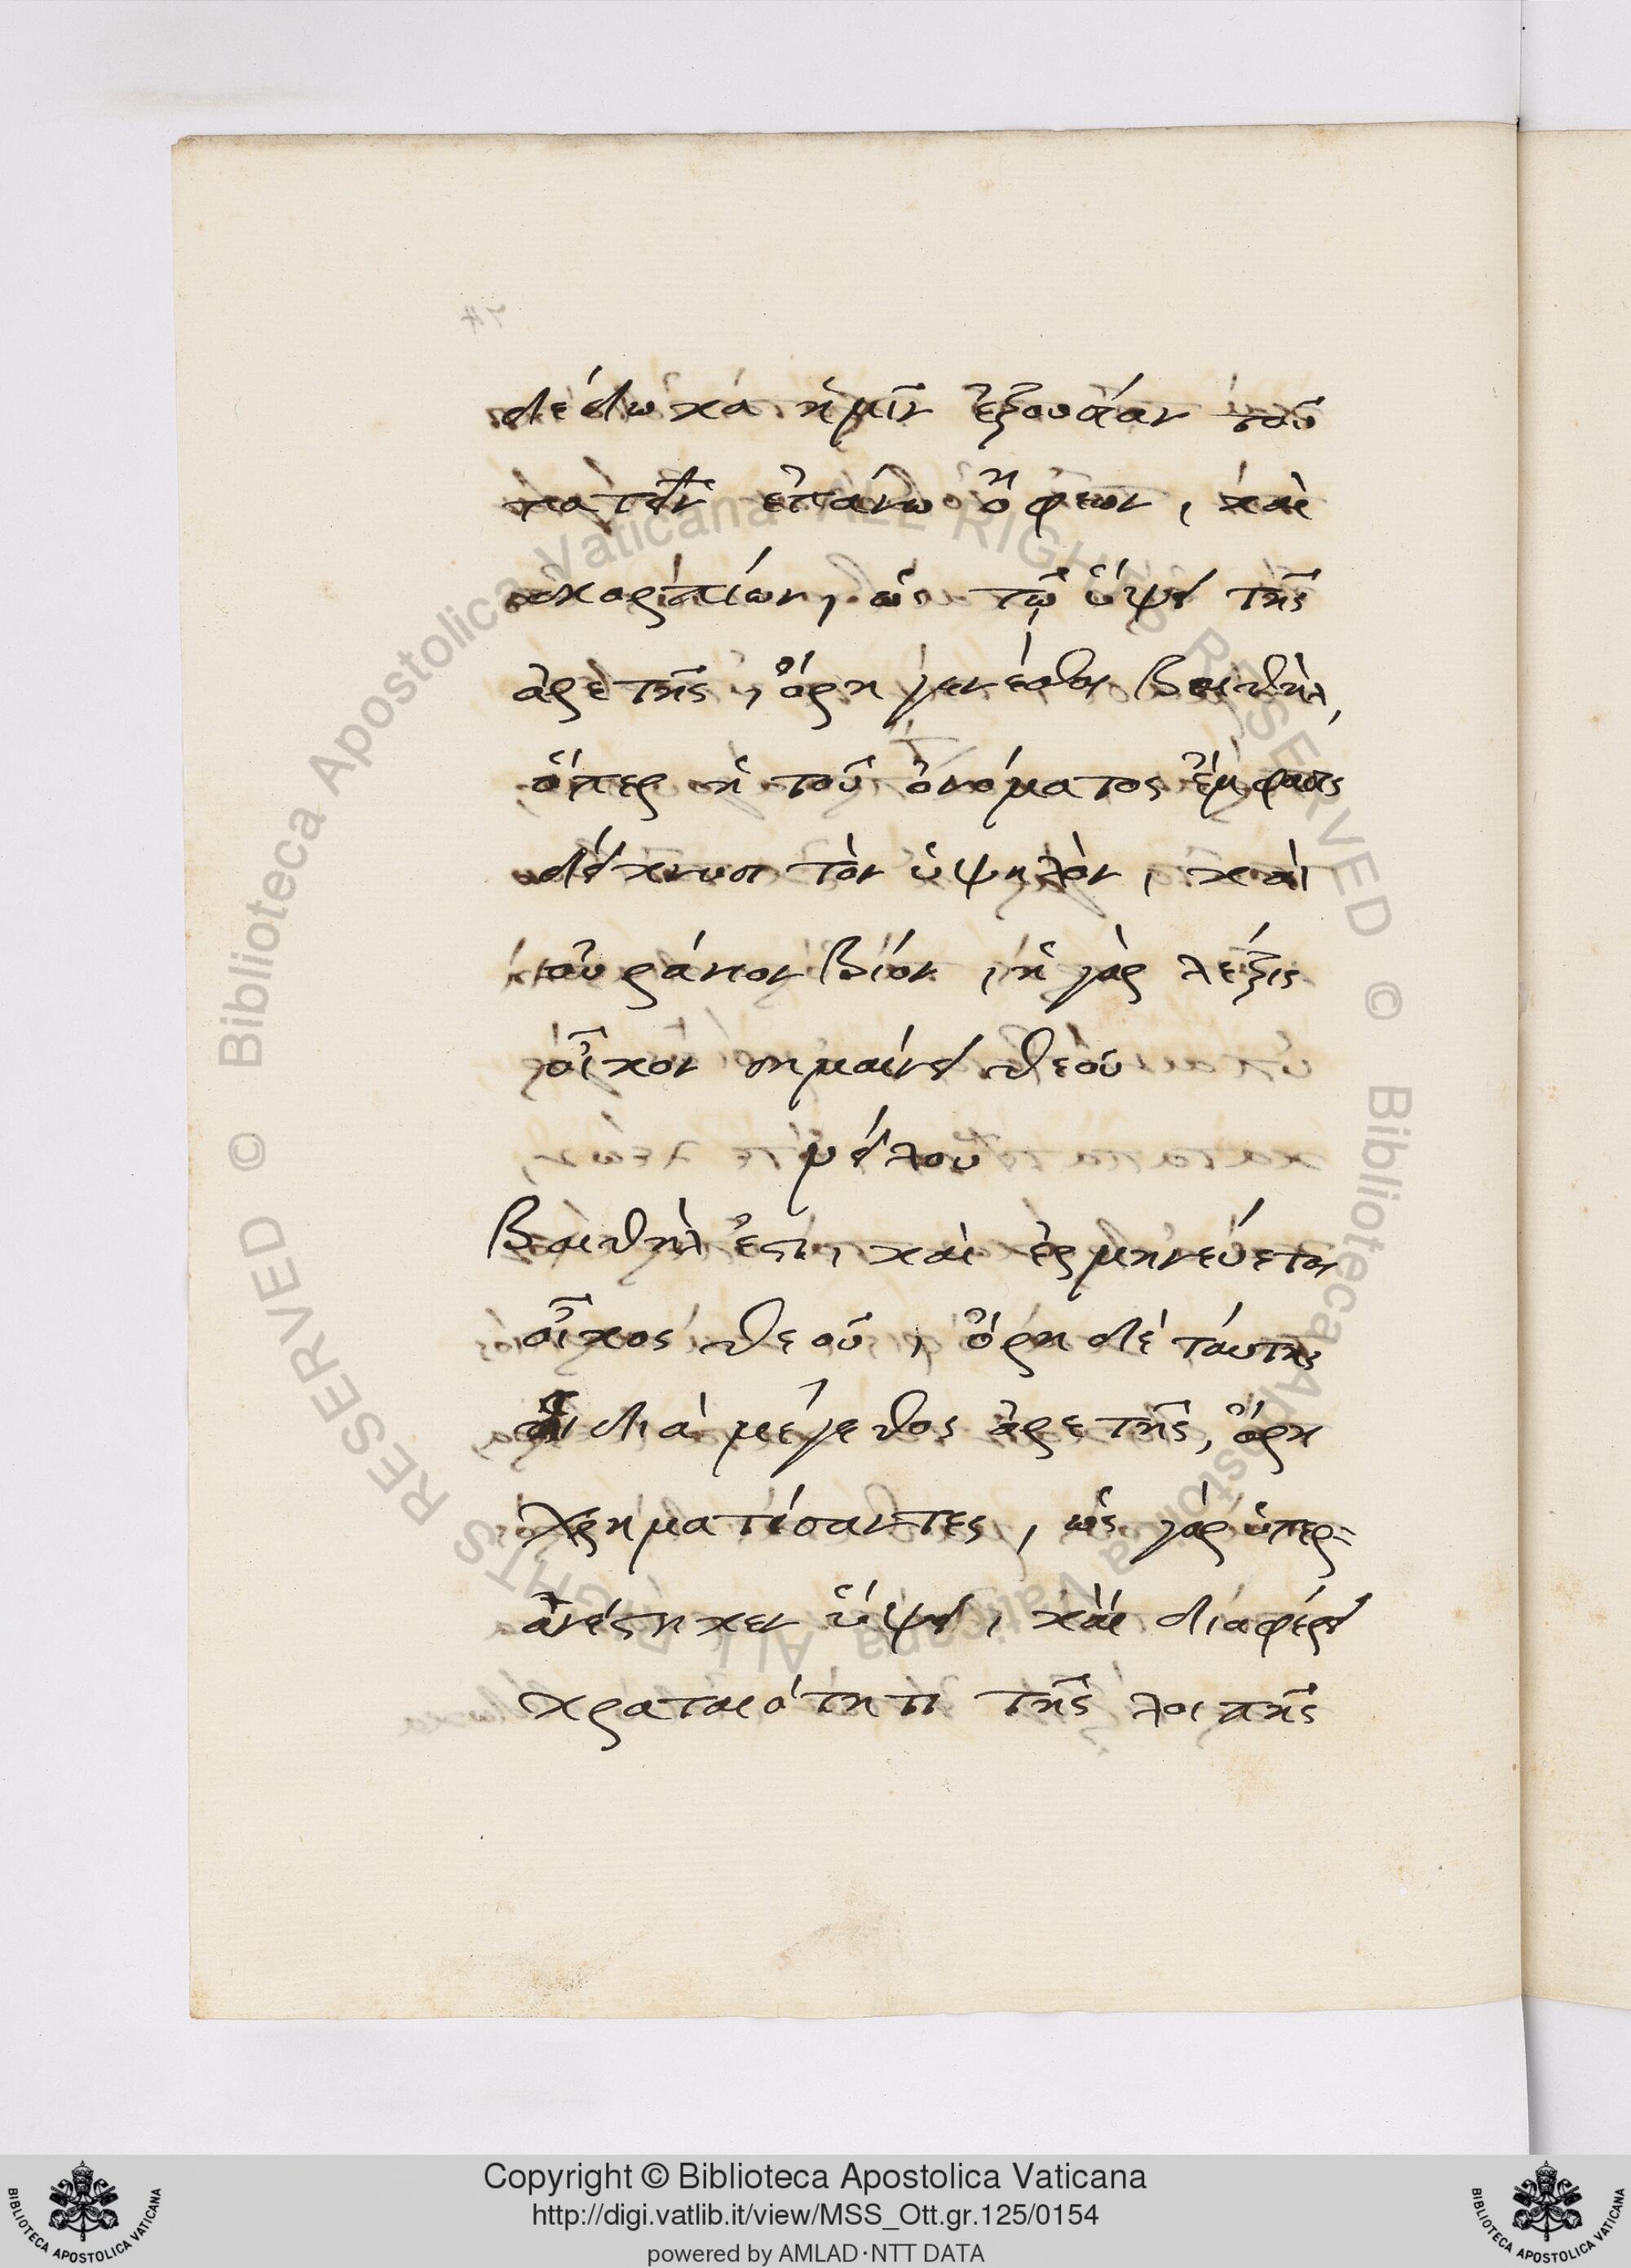 δέδωκά ἡμῖν ἐξουσίαν τοῦ
πατεῖν ἐπάνω ὄφεων, καὶ
σκορπίων, ὡς τῷ ὕψει τῆς
ἀρετῆς, ὄρη γενέσθαι Βαιθὴλ,
ὅπερ ἡ τοῦ ὀνόματος ἔμφασις
δείκνυσι τὸν ὑψηλὸν, καὶ
οὐράνιον βίον, ἡ γὰρ λέξις
οἶκον σημαίνει θεοῦ
μείλου
Βαιθὴλ ἐστι, καὶ ἑρμηνεύεται
οἶκος θεοῦ, ὄρη δὲ ταύτης
οἱ διὰ μέγεθος ἀρετῆς, ὄρη
χρηματίσαντες, ὡς γὰρ ὑπερ-
ἀνέστηκεν ὕψει, καὶ διαφέρει
κραταιότητι τῆς λοιπῆς
Copyright © Biblioteca Apostolica Vaticana
http://digi.vatlib.it/view/MSS_Ott.gr.125/0154
powered by AMLAD·NTT DATA
BIBLIOTECA APOSTOLICA VATICANA
BIBLIOTECA APOSTOLICA VATICANA
© Biblioteca Apostolica Vaticana ALL RIGHTS RESERVED
© Biblioteca Apostolica Vaticana ALL RIGHTS RESERVED